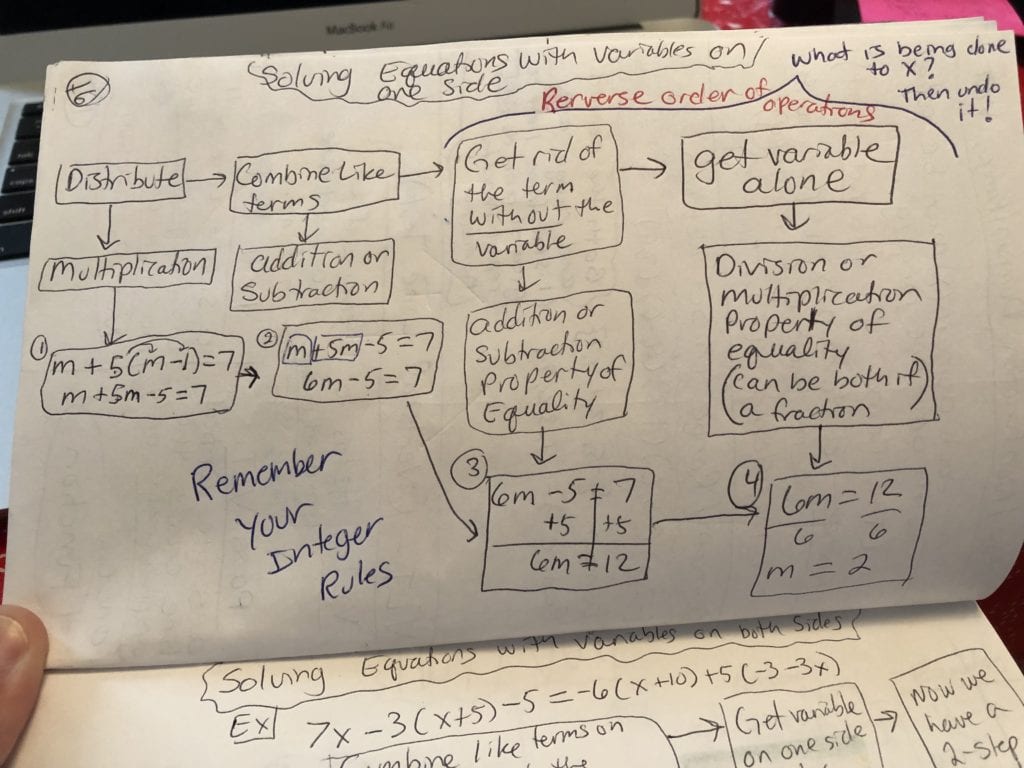 MacBook Pro
6
Solving Equations with variables on
one side
what is being done
to x?
Then undo
it!
Rerverse order of
operations
Distribute
Combine Like
terms
Get rid of
the term
without the
variable
get variable
alone
Multiplication
addition or
Subtraction
addition or
Subtraction
Property of
Equality
Division or
multiplication
Property of
equality
(can be both if
a fraction)
①
m + 5(m-1)=7
m+5m-5=7
②
m+5m-5=7
6m-5=7
③
6m -5 = 7
+5 +5
6m = 12
④
6m = 12
6 6
m = 2
Remember
your
Integer
Rules
Solving Equations with variables on both sides
Ex 7x - 3(x+5) -5 = -6(x+10)+5(-3-3x)
like terms on
the
Get variable
on one side
Now we
have a
2-step